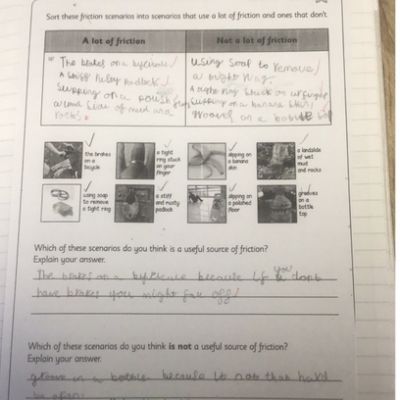 Sort these friction scenarios into scenarios that use a lot of friction and ones that don't.
A lot of friction
Not a lot of friction
The brakes on a
A rusty padlock
Slipping on a
a land Side of mud and
rocks
Using Soap to remove
a tight
Slipping on a banana Skin
on a
the brakes on a bicycle
a tight ring stuck on your finger
slipping on a banana skin
a landslide of wet mud and rocks
using soap to remove a tight ring
a stiff and rusty padlock
slipping on a polished floor
grooves on a bottle top
Which of these scenarios do you think is a useful source of friction?
Explain your answer.
The brakes on a because if you dont
have brakes you might off
Which of these scenarios do you think is not a useful source of friction?
Explain your answer.
because is not that hard